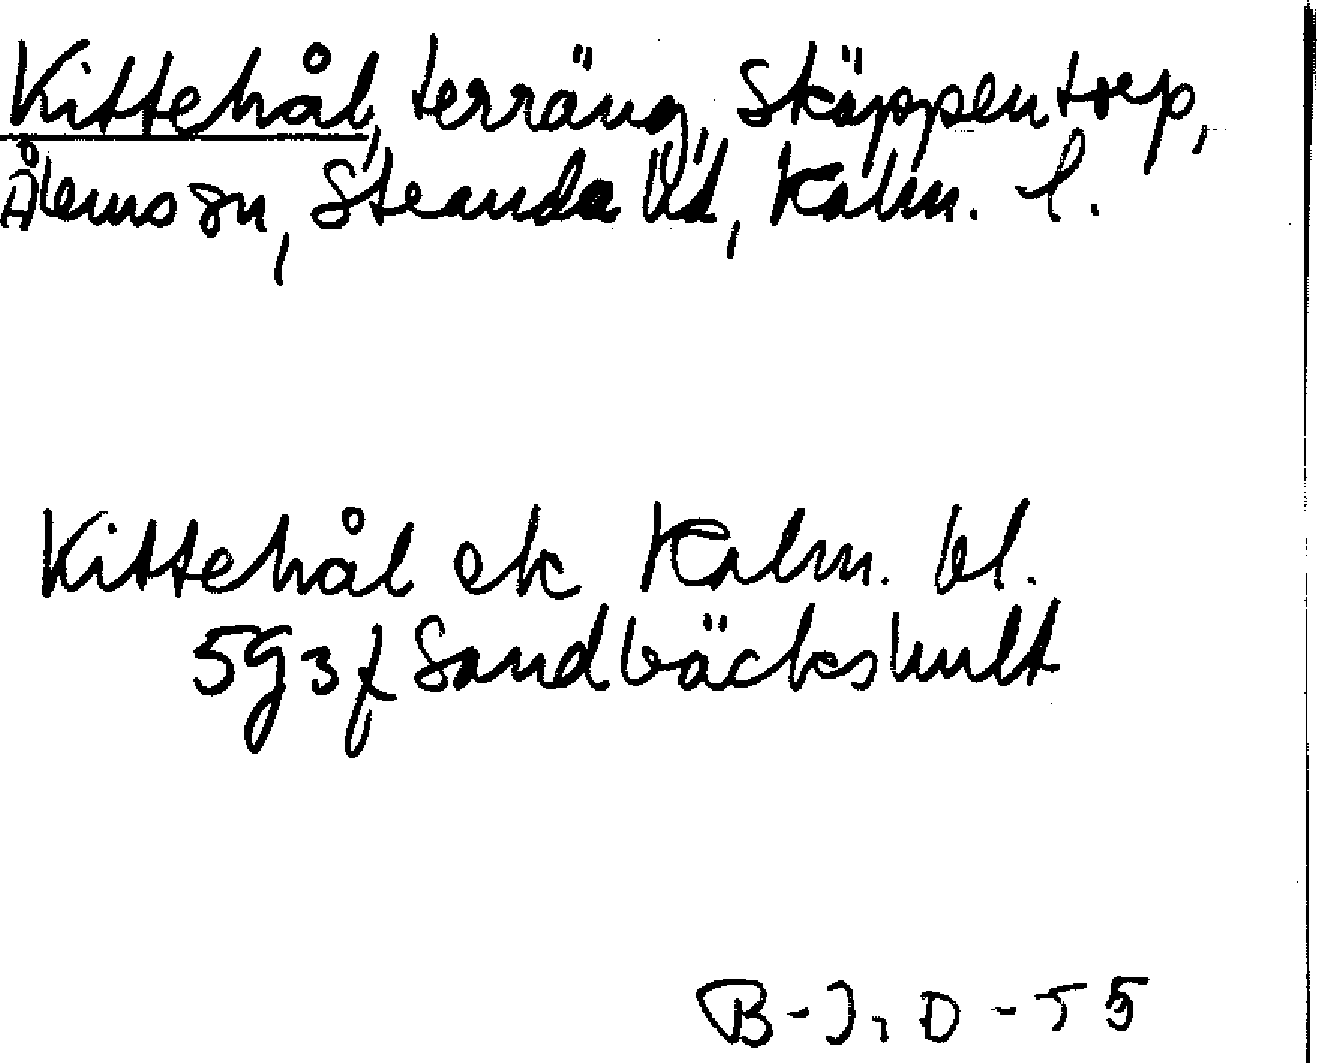 Kittehål, terräng, Skäppentorp,
Ålems sn, Stranda hd, Kalm. l.
Kittehål ek Kalm. bl.
5g3f Sandbäckshult
B-J, D-55